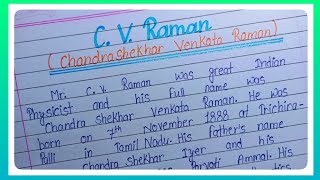 C. V. Raman
(Chandrashekhar Venkata Raman)
Mr. C. V. Raman was great Indian
Physicist and his full name was
Chandra shekhar Venkata Raman. He was
born on 7th November 1888 at Trichira-
Palli in Tamil Nadu. His father's name
Chandra shekhar Iyer and his
Ammal. His